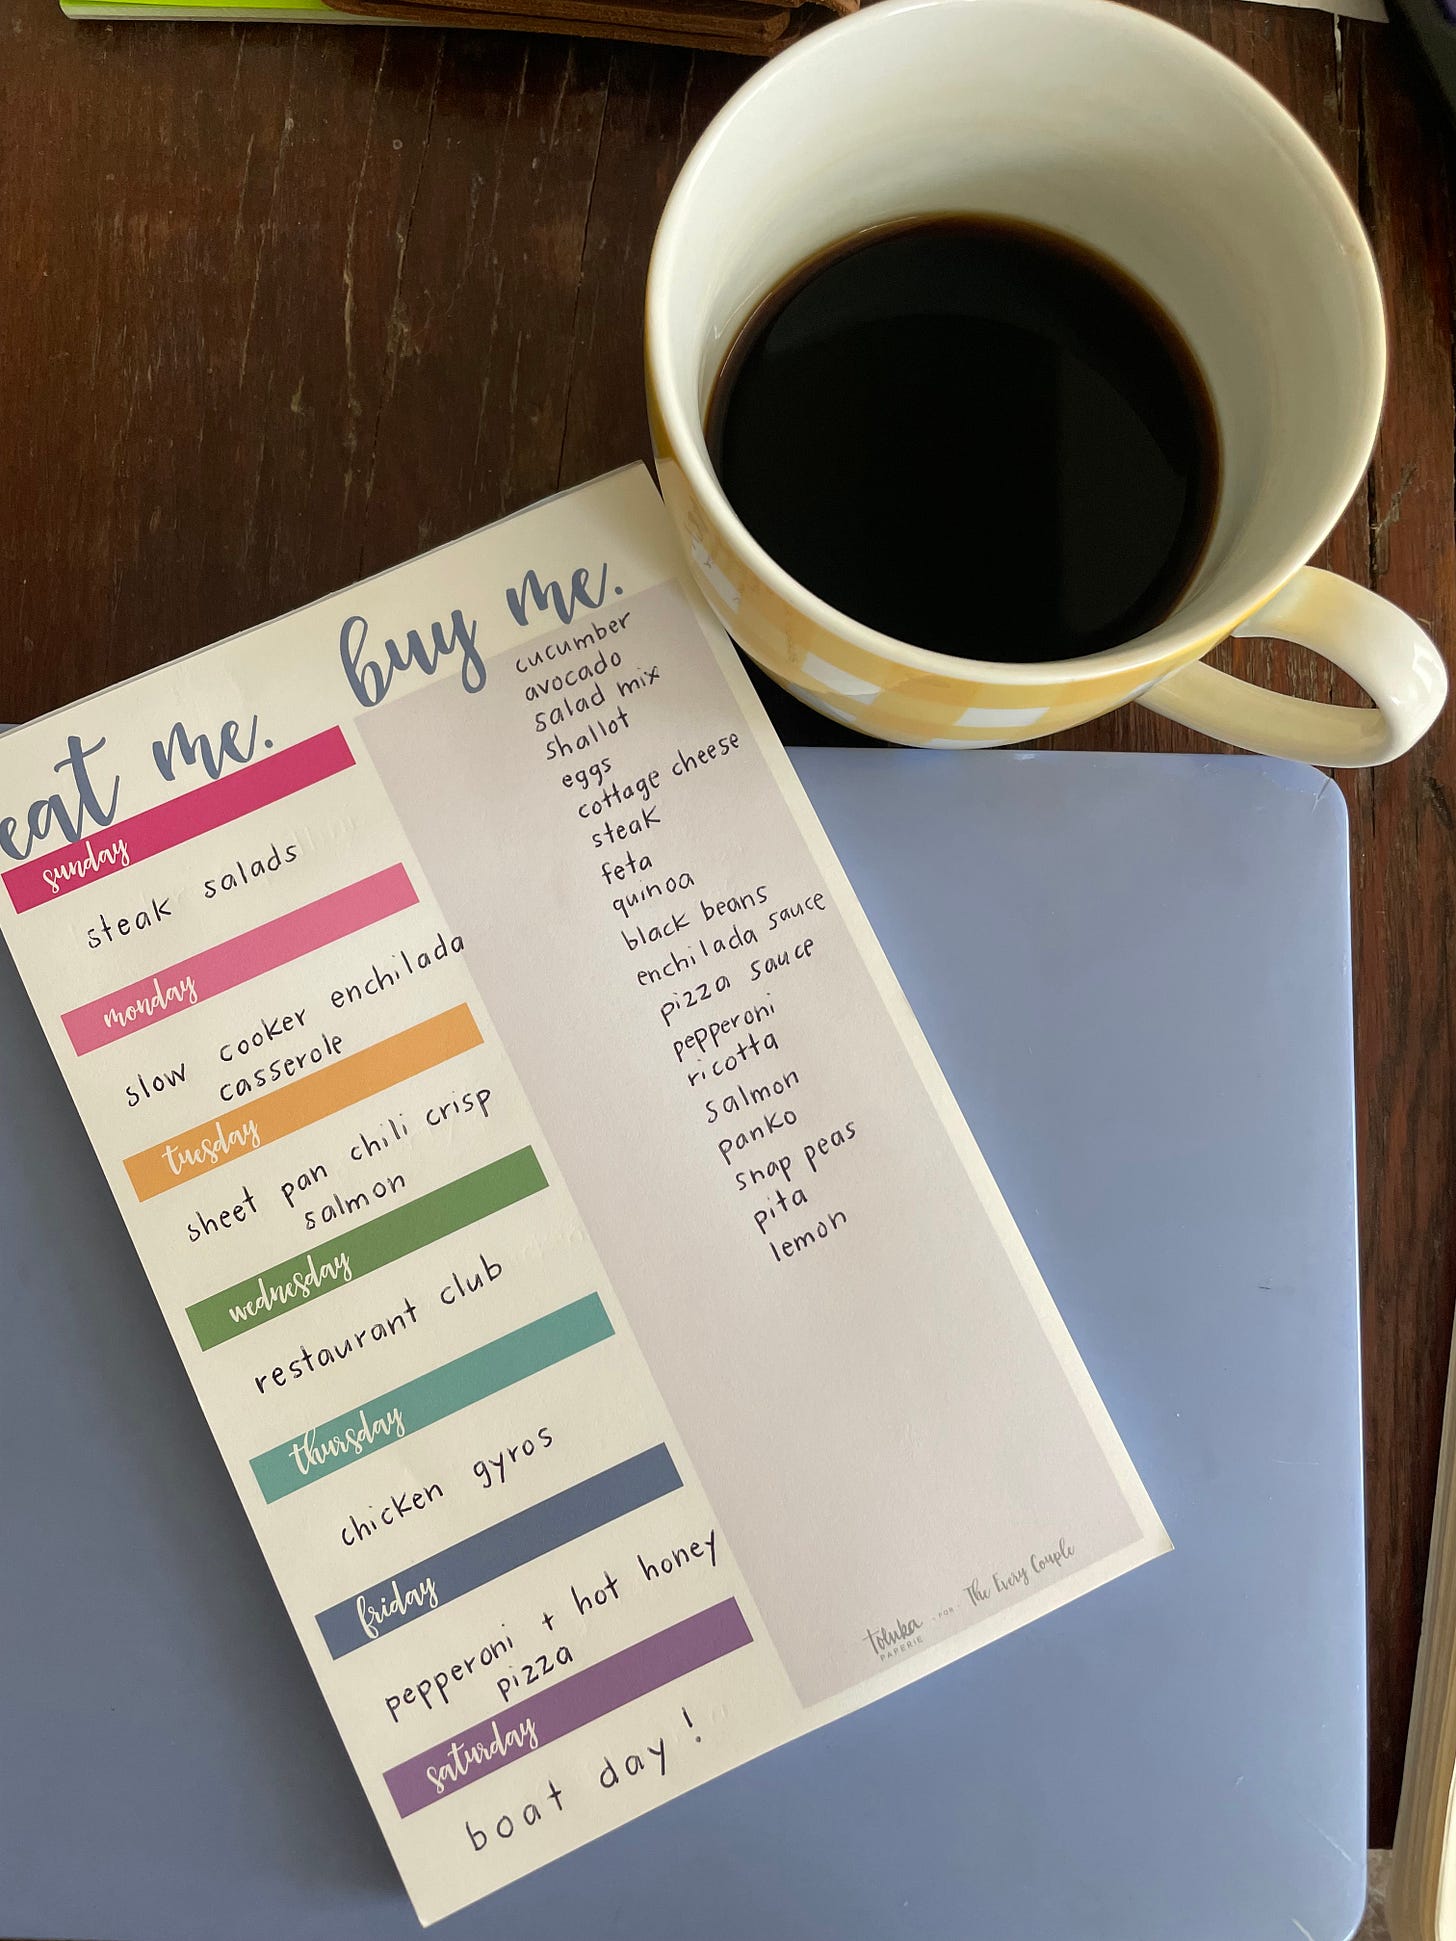 eat me.
sunday
steak salads
monday
slow cooker enchilada
casserole
tuesday
sheet pan chili crisp
salmon
wednesday
restaurant club
thursday
chicken gyros
friday
pepperoni + hot honey
pizza
saturday
boat day!
buy me.
cucumber
avocado
salad mix
shallot
eggs
cottage cheese
steak
feta
quinoa
black beans
enchilada sauce
pizza sauce
pepperoni
ricotta
salmon
panko
snap peas
pita
lemon
toluka - FOR - The Every Couple
PAPERIE